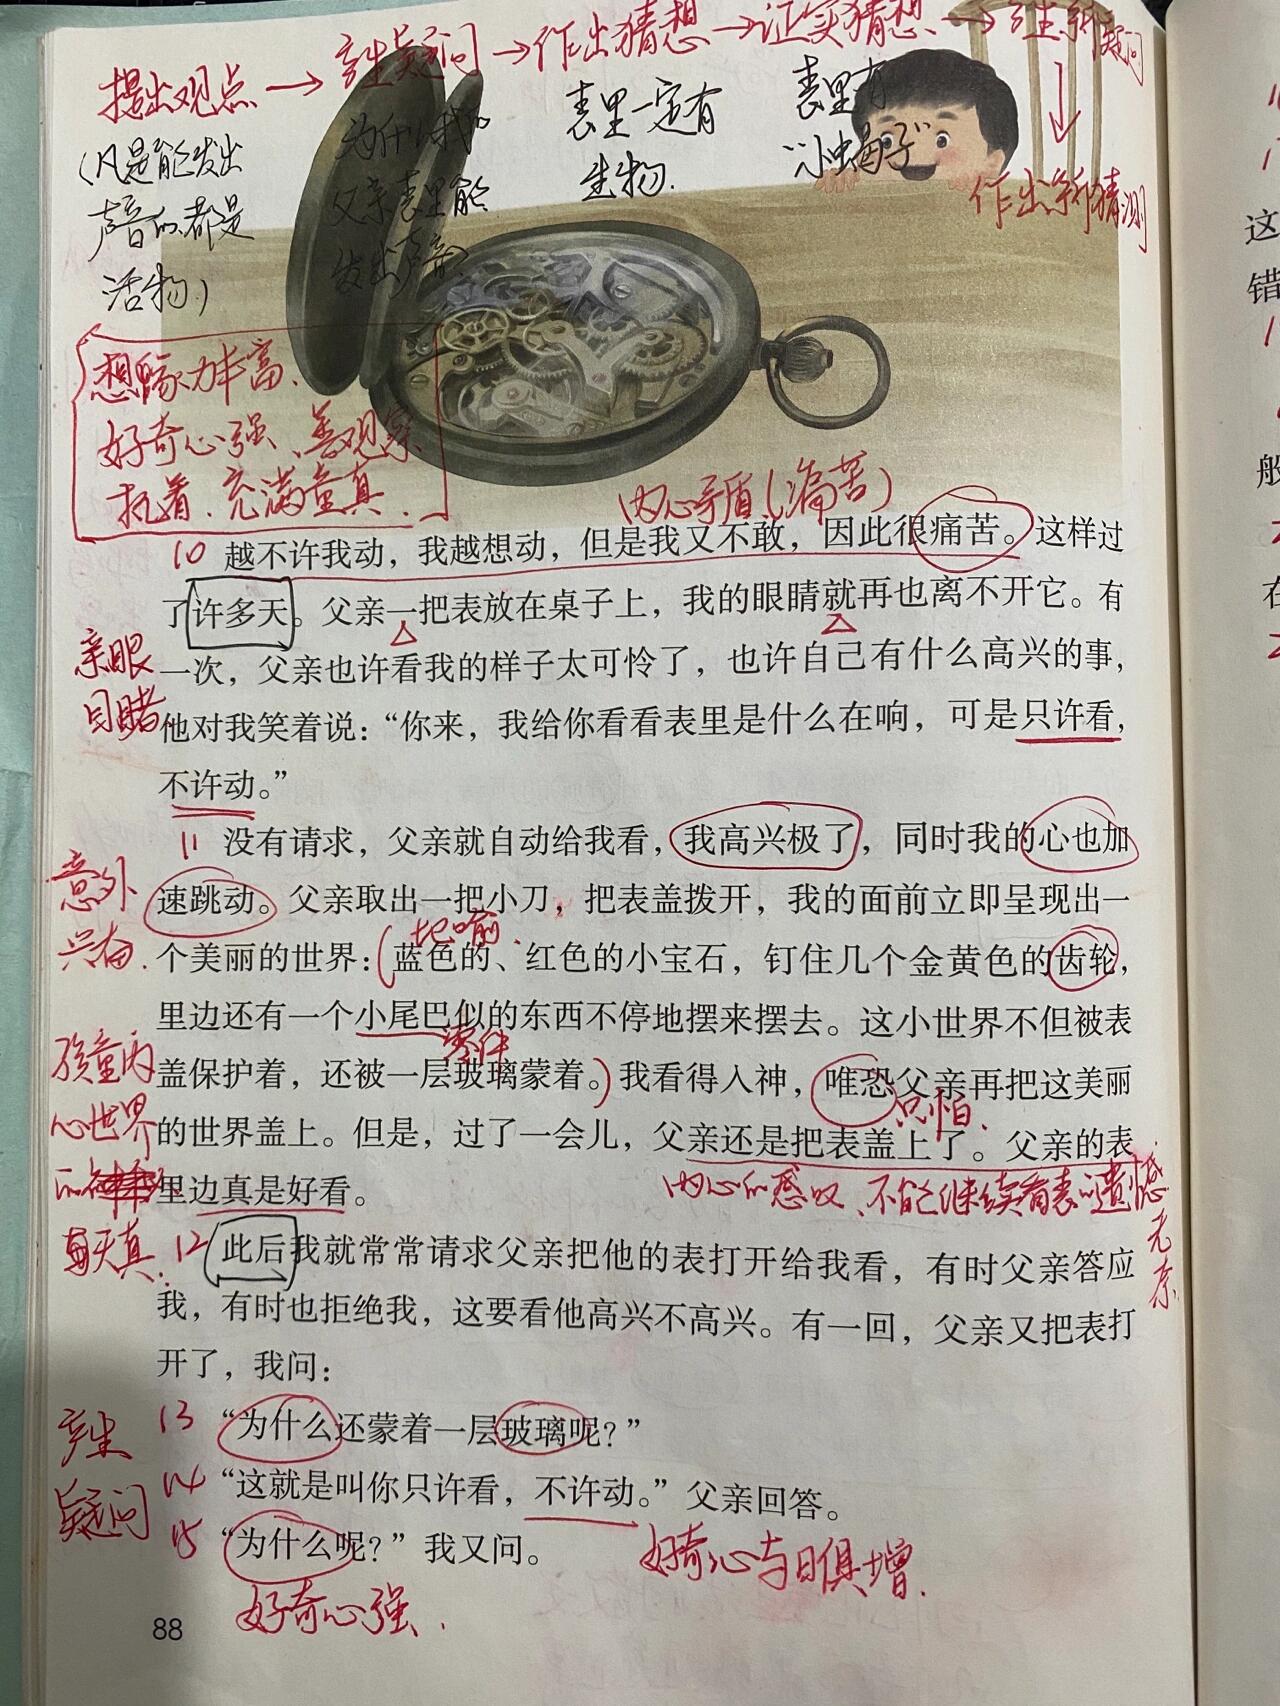 提出观点→产生疑问→作出猜想→证实猜想→产生新疑问
(凡是能发出
声音的都是
活物)
为什么我的
父亲表里能
发出声音?
表里一定有
生物.
表里有
“小虫
作出新猜测
想象力丰富、
好奇心强、善观察
执着、充满童真.
内心矛盾(痛苦)
10 越不许我动，我越想动，但是我又不敢，因此很痛苦。这样过
了许多天。父亲一把表放在桌子上，我的眼睛就再也离不开它。有
亲眼
目睹
一次，父亲也许看我的样子太可怜了，也许自己有什么高兴的事，
他对我笑着说：“你来，我给你看看表里是什么在响，可是只许看，
不许动。”
11 没有请求，父亲就自动给我看，我高兴极了，同时我的心也加
意外
兴奋.
速跳动。父亲取出一把小刀，把表盖拨开，我的面前立即呈现出一
比喻.
个美丽的世界：(蓝色的、红色的小宝石，钉住几个金黄色的齿轮，
里边还有一个小尾巴似的东西不停地摆来摆去。这小世界不但被表
零件
孩童内
心世界
的
天真.
盖保护着，还被一层玻璃蒙着。)我看得入神，唯恐父亲再把这美丽
只怕.
的世界盖上。但是，过了一会儿，父亲还是把表盖上了。父亲的表
里边真是好看。
内心的感叹、不能继续看表的遗憾
无奈
12 此后我就常常请求父亲把他的表打开给我看，有时父亲答应
我，有时也拒绝我，这要看他高兴不高兴。有一回，父亲又把表打
开了，我问：
产生
疑问
13 “为什么还蒙着一层玻璃呢？”
14 “这就是叫你只许看，不许动。”父亲回答。
15 “为什么呢？”我又问。
好奇心与日俱增.
好奇心强.
88
这
错
般
在